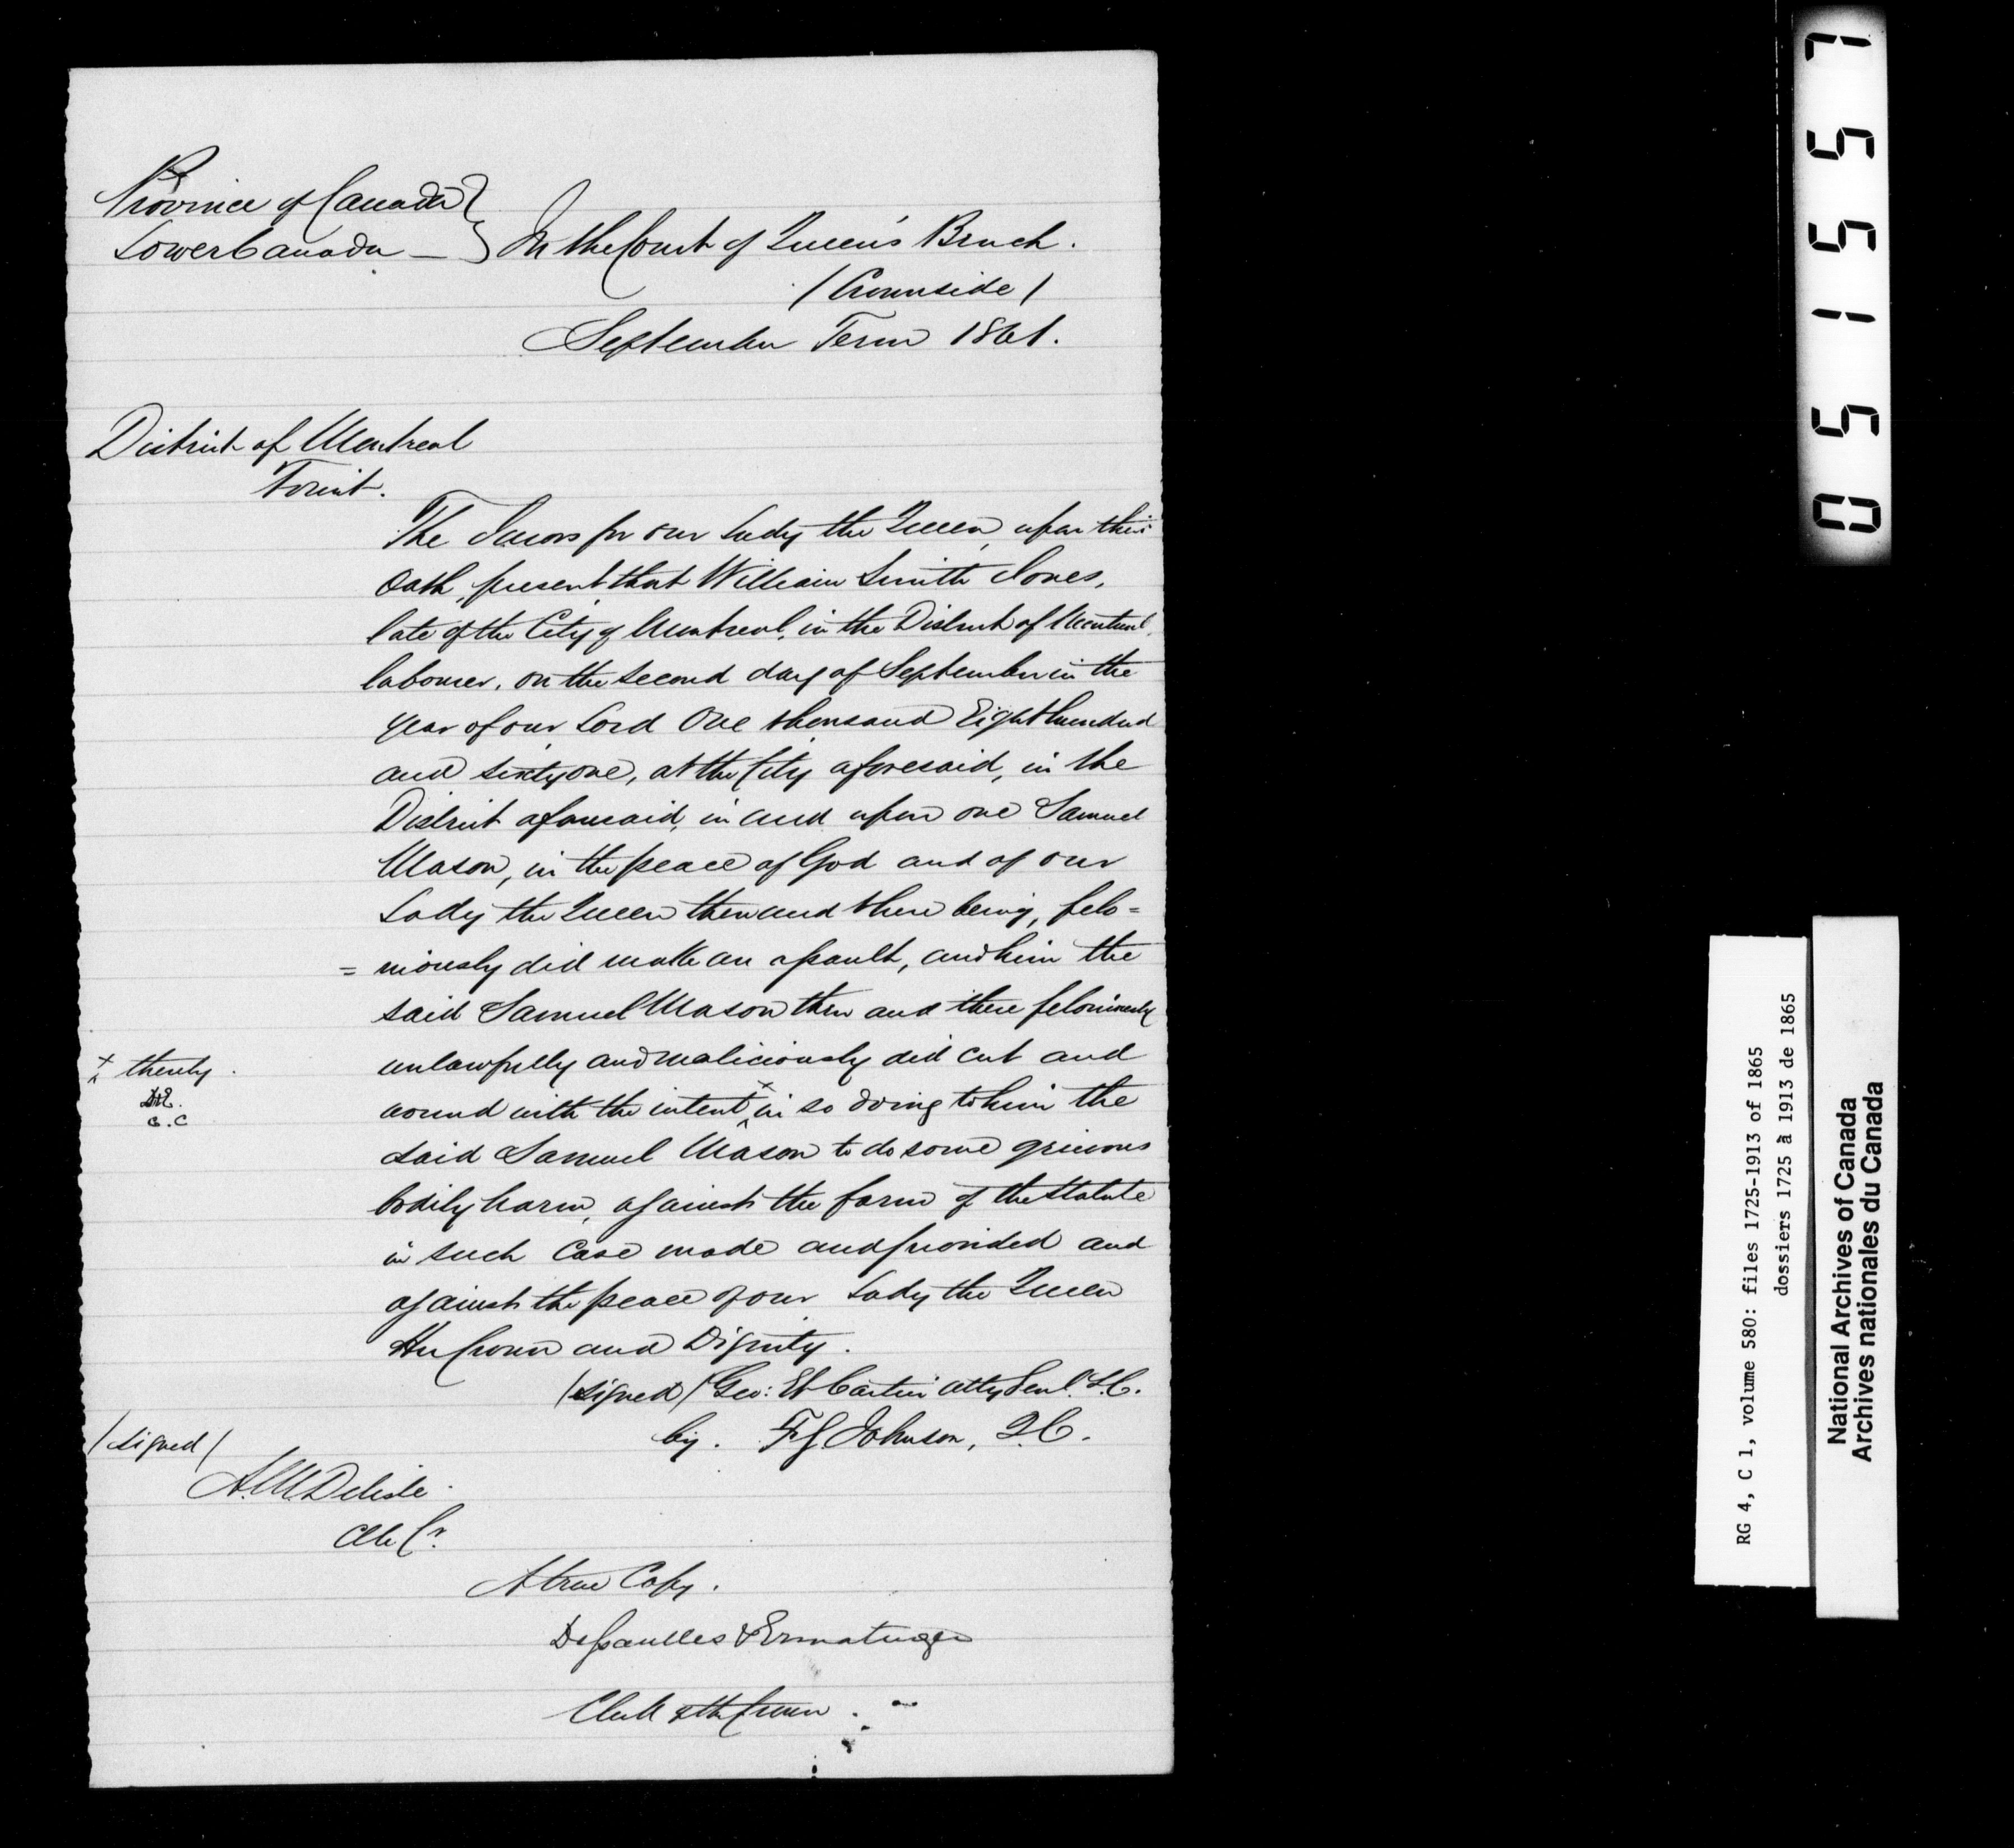 Province of Canada }
Lower Canada — } In the Court of Queen's Bench.
(Crownside)
September Term 1861.
District of Montreal
To wit.
The Jurors for our Lady the Queen, upon their
Oath, present that William Smith Jones,
late of the City of Montreal, in the District of Montreal,
labourer, on the second day of September in the
year of our Lord One thousand Eight hundred
and sixty one, at the City aforesaid, in the
District aforesaid, in and upon one Samuel
Mason, in the peace of God and of our
Lady the Queen then and there being, felo=
=niously did make an assault, and him the
said Samuel Mason then and there feloniously
unlawfully and maliciously did cut and
wound with the intent x in so doing to him the
said Samuel Mason to do some grievous
bodily harm, against the form of the Statute
in such Case made and provided and
against the peace of our Lady the Queen
Her Crown and Dignity.
x thereby.
C.C
(signed) Geo: Et Cartier Atty Genl. L.C.
by. F G Johnson, Q.C.
(signed)
A.M. Delisle.
Clk Cn.
A true Copy.
Dessaulles & Ermatinger
Clerk of the Crown.
051557
RG 4, C 1, volume 580: files 1725-1913 of 1865
dossiers 1725 à 1913 de 1865
National Archives of Canada
Archives nationales du Canada